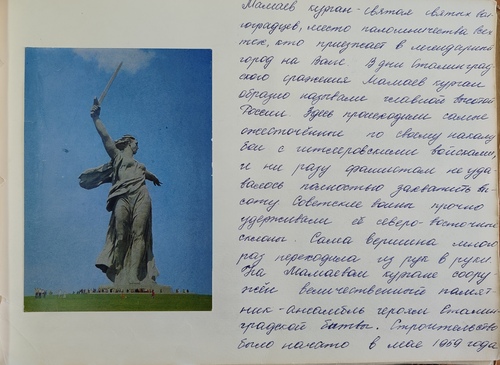 Мамаев курган - святая святых вол
гоградцев, место паломничества всех
тех, кто приезжает в легендарный
город на Волге. В дни Сталинград
ского сражения Мамаев курган
образно называли главной высотой
России. Здесь происходили самые
ожесточённые по своему накалу
бои с гитлеровскими войсками,
и ни разу фашистам не уда
валось полностью захватить вы
соту Советские воины прочно
удерживали её северо-восточные
склоны. Сама вершина много
раз переходила из рук в руки
На Мамаевом кургане соору
жён величественный памят
ник-ансамбль героям Сталин
градской битвы. Строительство
было начато в мае 1959 года